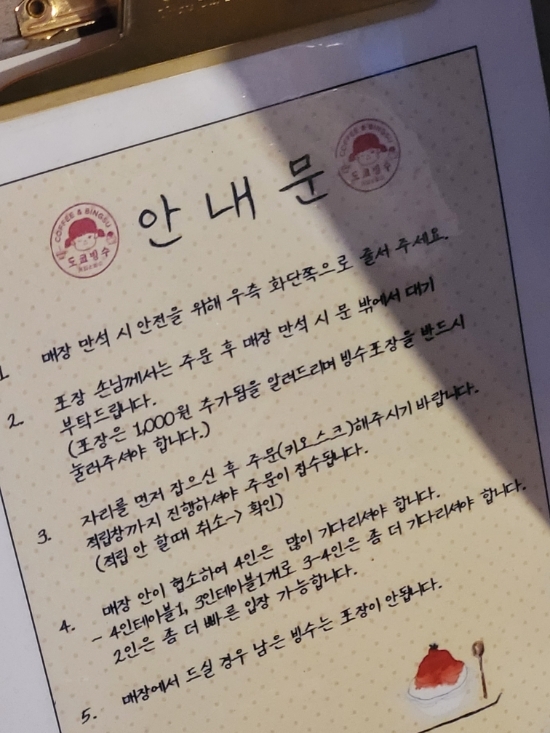 COFFEE & BINGSU
도쿄빙수
안내문
COFFEE & BINGSU
도쿄빙수
1. 매장 만석 시 안전을 위해 우측 화단쪽으로 줄서 주세요.
2. 포장 손님께서는 주문 후 매장 만석 시 문 밖에서 대기
부탁드립니다.
(포장은 1,000원 추가됨을 알려드리며 빙수포장을 반드시
눌러주셔야 합니다.)
3. 자리를 먼저 잡으신 후 주문(키오스크)해주시기 바랍니다.
적립창까지 진행하셔야 주문이 접수됩니다.
(적립 안 할때 취소-> 확인)
4. 매장 안이 협소하여 4인은 많이 기다리셔야 합니다.
- 4인테이블1, 3인테이블1개로 3-4인은 좀 더 기다리셔야 합니다.
2인은 좀 더 빠른 입장 가능합니다.
5. 매장에서 드실 경우 남은 빙수는 포장이 안됩니다.